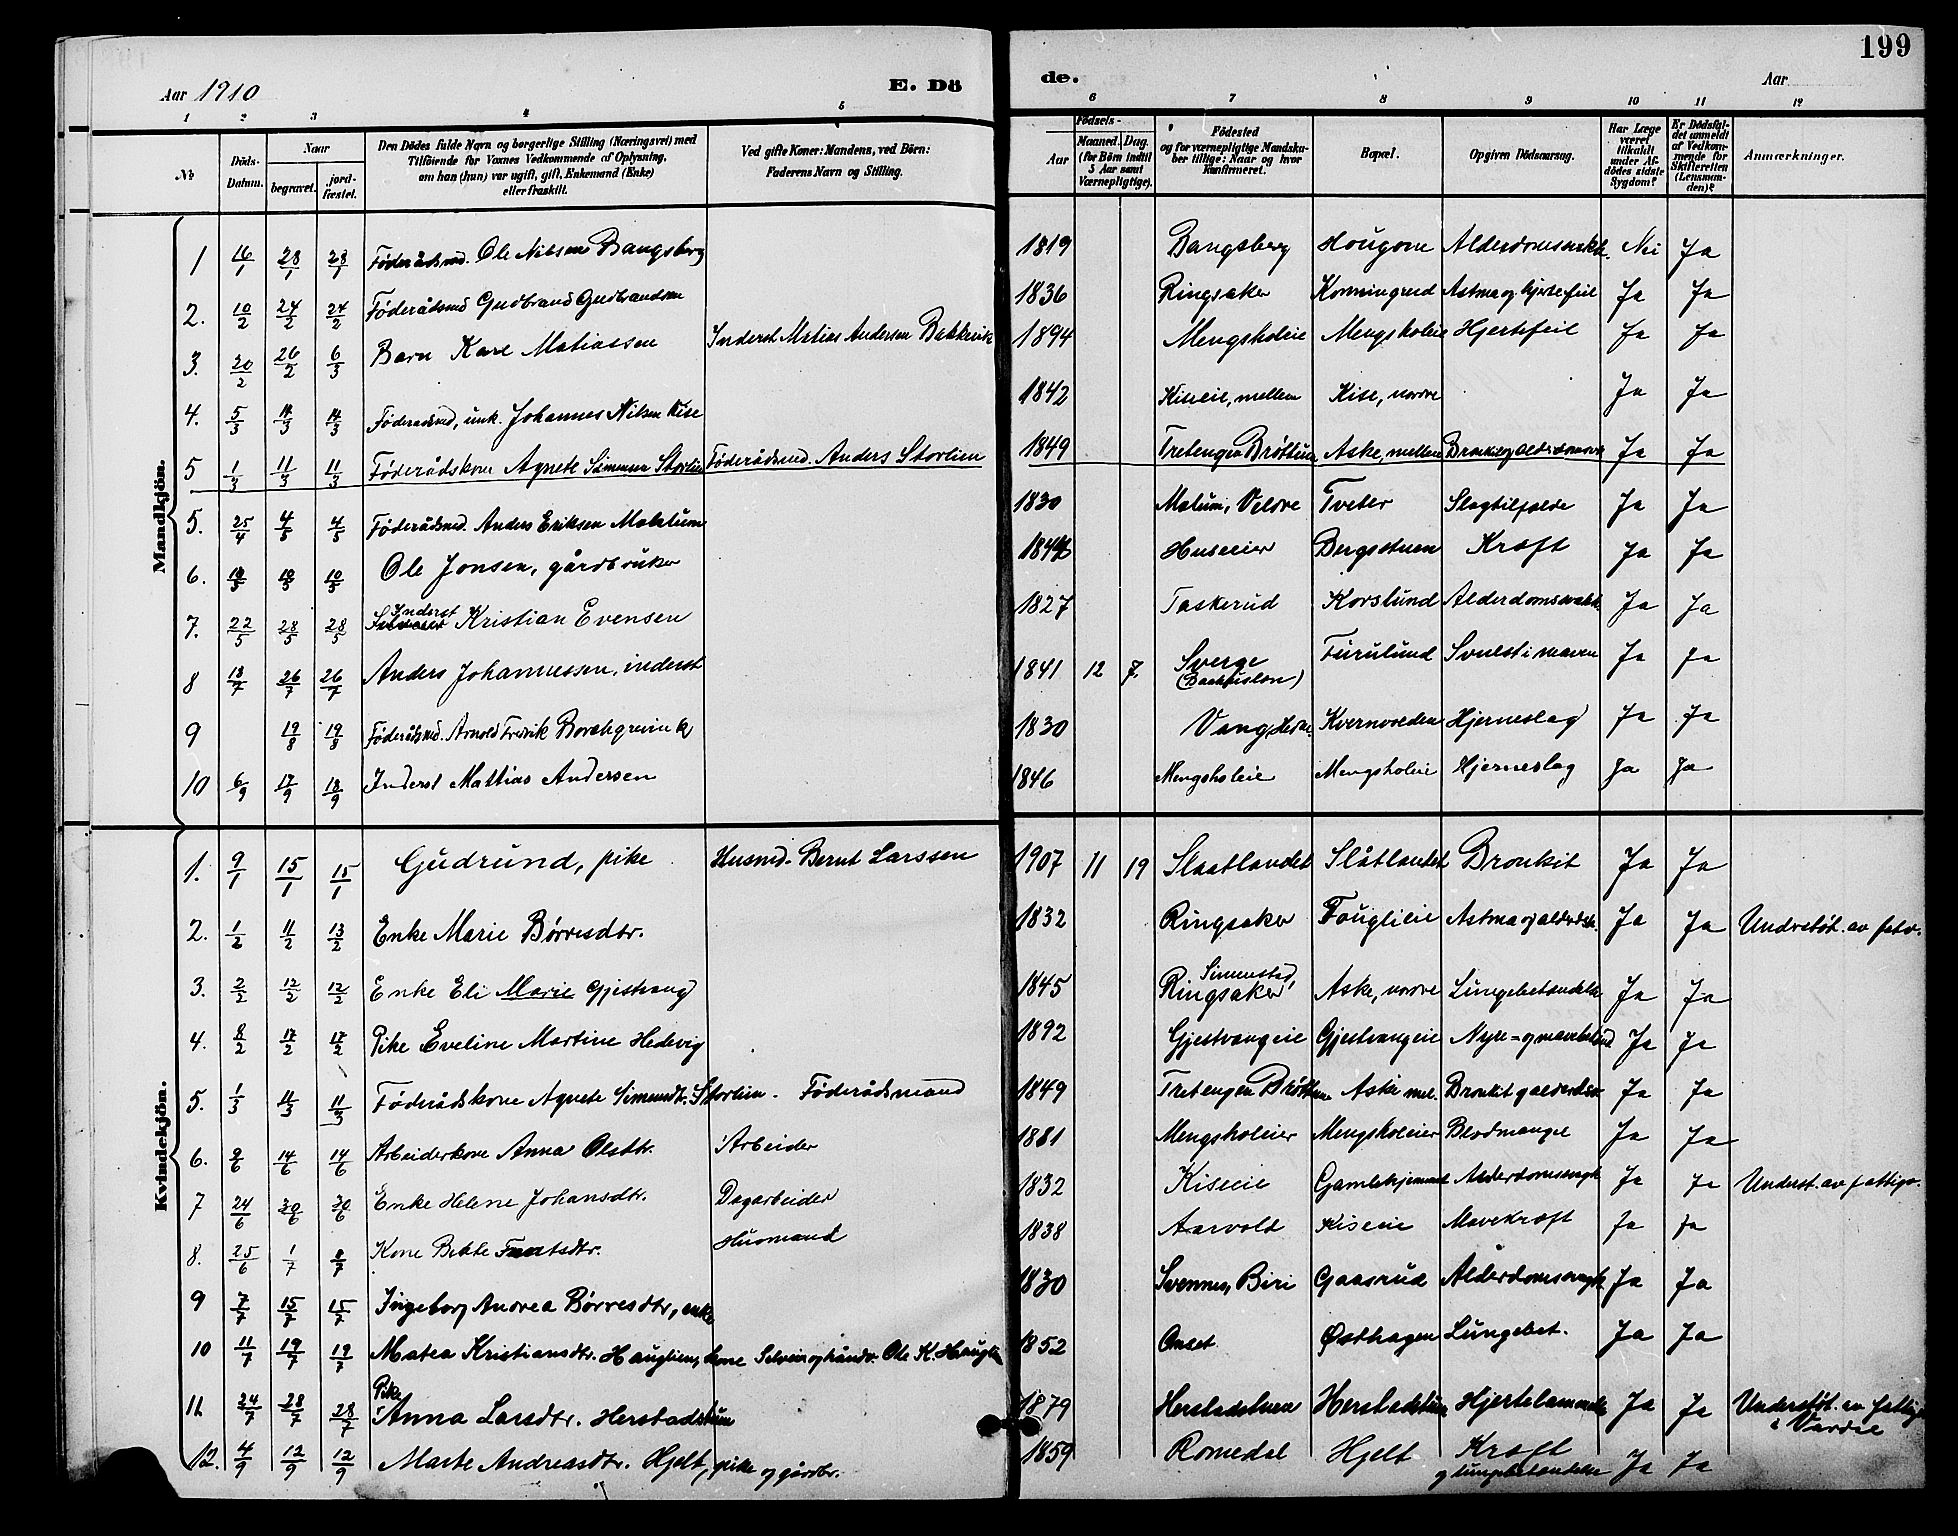 199
Aar 1910 E. Dö
de. Aar
1 2 3 4 5
6 7 8 9 10 11 12
No
Döds-Datum.
Naar
begravet.
jord-fæstet.
Den Dödes fulde Navn og borgerlige Stilling (Næringsvei) med
Tilföiende for Voxnes Vedkommende af Oplysning,
om han (hun) var ugift, gift, Enkemand (Enke)
eller fraskilt.
Ved gifte Koner: Mandens, ved Börn:
Faderens Navn og Stilling.
Födsels-
Aar
Maaned. Dag.
(for Börn indtil
5 Aar samt
Værnepligtige).
Födested
og for værnepligtige Mandska-
ber tillige: Naar og hvor
Konfirmeret.
Bopæl.
Opgiven Dödsaarsag.
Har Læge
været
tilkaldt
under Af-
dödes sidste
Sygdom?
Er Dödsfal-
det anmeldt
af Vedkom-
mende for
Skifteretten
(Lensman-
den)?
Anmærkninger.
Mandkjön.
1 16/1 28/1 28/1 Føderådsmd. Ole Nilsen Bangsberg 1819 Bangsberg Hougom Nei Ja
2. 10/2 24/2 24/2 Føderådsmd Gudbrand Gudbrandsen 1836 Ringsaker Astma og hjertefeil Ja Ja
3. 20/2 26/2 6/3 Barn Karl Matiassen Inderst Matias Andersen 1894 Mengsholeie Mengsholeie Hjertefeil Ja Ja
4. 5/3 14/3 14/3 Føderådsmd, unk. Johannes Nilsen Kise 1842 Kiseeie, mellem Kise, nordre Ja Ja
5 1/3 11/3 11/3 Føderådskone Agnete Simensen Storlien Føderådsmd. Anders Storlien 1849 Tretengen Brøttum Aske, mellem Ja Ja
5. 25/4 4/5 4/5 Føderådsmd. Anders Eriksen 1830 Veldre Tveter Slagtilfælde Ja Ja
6. 10/5 10/5 Ole Jonsen, gårdbruker Huseier Bergsstuen Kræft Ja Ja
7. 22/5 28/5 28/5 Inderst Kristian Evensen 1827 Taskerud Korslund Alderdomssvakh. Ja Ja
8 18/7 26/7 26/7 Anders Johannessen, inderst 1841 12 7. Sverge Furulund Svulst i maven Ja Ja
9 19/8 19/8 Føderådsmd. Arnold Fredrik Borchgrevink 1830 Vang, Hedm. Hjerneslag Ja Ja
10 6/9 17/9 18/9 Inderst Mattias Andersen 1846 Mengsholeie Mengsholeie Hjerneslag Ja Ja
Kvindekjön.
1. 9/1 15/1 15/1 Gudrund, pike Husmd. Bernt Larssen 1907 11 19 Slaatlandet Slåtlandet Bronkit Ja Ja
2. 1/2 11/2 13/2 Enke Marie Børresdtr. 1832 Ringsaker Astma og Ja Ja Understøt. av fatv.
3. 2/2 12/2 12/2 Enke Eli Marie Gjestvang 1845 Simenstad, Ringsaker Aske, nordre Lungebetændelse Ja Ja
4. 8/2 17/2 17/2 Pike Eveline Martine Hedevig 1892 Gjestvangeie Gjestvangeie Ja Ja
5. 1/3 11/3 11/3 Føderådskone Agnete Simensdtr. Storlien. Føderådsmand 1849 Tretengen Brøttum Aske mel. Ja Ja
6. 14/6 14/6 Arbeiderkone Anna Olsdtr. Arbeider 1881 Mengsholeier Mengsholeier Blodmangel Ja Ja
7 24/6 30/6 30/6 Enke Helene Johansdtr. Dagarbeider 1832 Kiseeie Gamlehjemmet Ja Ja Underst. av fattigv.
8. 25/6 1/7 Kone Husmand 1838 Aarvold Kiseeie Mavekræft Ja Ja
9 7/7 15/7 15/7 Ingeborg Andrea Børresdtr, enke 1830 Svennes, Biri Gaasrud Ja Ja
10 11/7 19/7 19/7 Matea Kristiansdtr. Hauglien, kone Selveier og håndv. Ole K. Hauglie 1852 Onset Østhagen Lungebet. Ja Ja
11 24/7 28/7 28/7 Pike Anna Larsdtr. Herstadstuen 1879 Herstadstuen Herstadstuen Hjertelammelse Ja Ja Understøt. av fattigv. i Vardal
12. 4/9 12/9 12/9 Marte Andreasdtr. Hjelt, pike og gårdbr. 1859 Romedal Hjelt Kræft og lungebetændelse Ja Ja